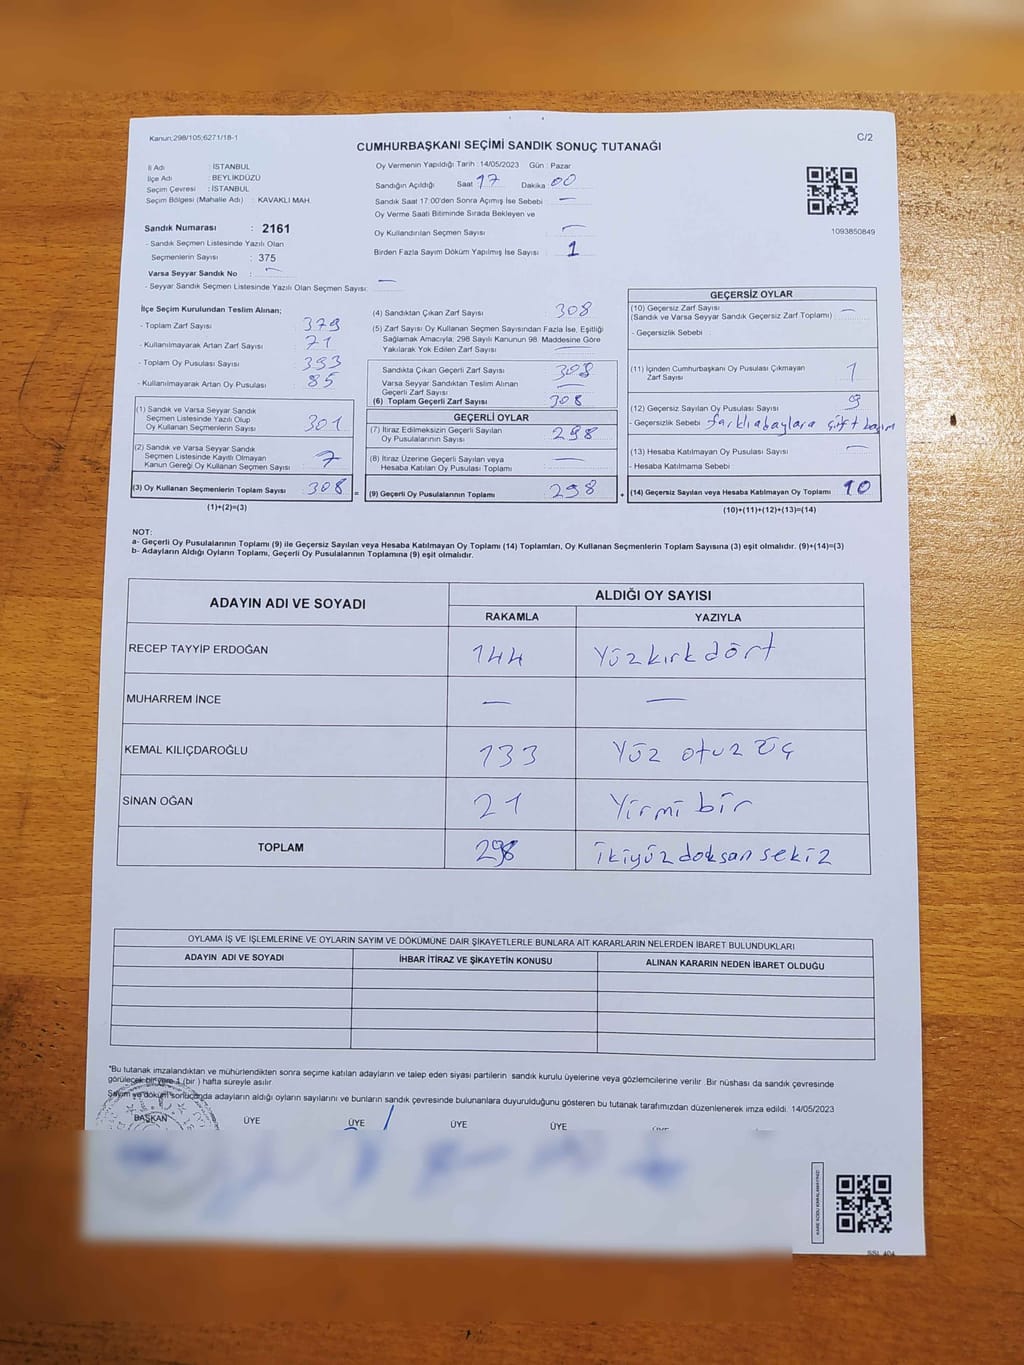 Kanun;298/105;6271/18-1
C/2
CUMHURBAŞKANI SEÇİMİ SANDIK SONUÇ TUTANAĞI
İl Adı : İSTANBUL
İlçe Adı : BEYLİKDÜZÜ
Seçim Çevresi : İSTANBUL
Seçim Bölgesi (Mahalle Adı) : KAVAKLI MAH.
Sandık Numarası : 2161
- Sandık Seçmen Listesinde Yazılı Olan
Seçmenlerin Sayısı : 375
Varsa Seyyar Sandık No : —
- Seyyar Sandık Seçmen Listesinde Yazılı Olan Seçmen Sayısı: —
Oy Vermenin Yapıldığı Tarih : 14/05/2023 Gün : Pazar
Sandığın Açıldığı Saat 17 Dakika 00
Sandık Saat 17:00'den Sonra Açımış İse Sebebi : —
Oy Verme Saati Bitiminde Sırada Bekleyen ve
Oy Kullandırılan Seçmen Sayısı : —
Birden Fazla Sayım Döküm Yapılmış İse Sayısı : 1
1093850849
İlçe Seçim Kurulundan Teslim Alınan;
- Toplam Zarf Sayısı : 379
- Kullanılmayarak Artan Zarf Sayısı : 71
- Toplam Oy Pusulası Sayısı : 393
- Kullanılmayarak Artan Oy Pusulası : 85
(1) Sandık ve Varsa Seyyar Sandık
Seçmen Listesinde Yazılı Olup
Oy Kullanan Seçmenlerin Sayısı : 301
(2) Sandık ve Varsa Seyyar Sandık
Seçmen Listesinde Kayıtlı Olmayan
Kanun Gereği Oy Kullanan Seçmen Sayısı : 7
(3) Oy Kullanan Seçmenlerin Toplam Sayısı : 308
(1)+(2)=(3)
=
(4) Sandıktan Çıkan Zarf Sayısı : 308
(5) Zarf Sayısı Oy Kullanan Seçmen Sayısından Fazla İse, Eşitliği
Sağlamak Amacıyla; 298 Sayılı Kanunun 98. Maddesine Göre
Yakılarak Yok Edilen Zarf Sayısı : —
Sandıkta Çıkan Geçerli Zarf Sayısı : 308
Varsa Seyyar Sandıktan Teslim Alınan
Geçerli Zarf Sayısı : —
(6) Toplam Geçerli Zarf Sayısı : 308
GEÇERLİ OYLAR
(7) İtiraz Edilmeksizin Geçerli Sayılan
Oy Pusulalarının Sayısı : 298
(8) İtiraz Üzerine Geçerli Sayılan veya
Hesaba Katılan Oy Pusulası Toplamı : —
(9) Geçerli Oy Pusulalarının Toplamı : 298
+
GEÇERSİZ OYLAR
(10) Geçersiz Zarf Sayısı : —
(Sandık ve Varsa Seyyar Sandık Geçersiz Zarf Toplamı)
- Geçersizlik Sebebi :
(11) İçinden Cumhurbaşkanı Oy Pusulası Çıkmayan
Zarf Sayısı : 1
(12) Geçersiz Sayılan Oy Pusulası Sayısı : 9
- Geçersizlik Sebebi : farklı abaylara çift basım
(13) Hesaba Katılmayan Oy Pusulası Sayısı : —
- Hesaba Katılmama Sebebi :
(14) Geçersiz Sayılan veya Hesaba Katılmayan Oy Toplamı : 10
(10)+(11)+(12)+(13)=(14)
NOT:
a- Geçerli Oy Pusulalarının Toplamı (9) ile Geçersiz Sayılan veya Hesaba Katılmayan Oy Toplamı (14) Toplamları, Oy Kullanan Seçmenlerin Toplam Sayısına (3) eşit olmalıdır. (9)+(14)=(3)
b- Adayların Aldığı Oyların Toplamı, Geçerli Oy Pusulalarının Toplamına (9) eşit olmalıdır.
ADAYIN ADI VE SOYADI
ALDIĞI OY SAYISI
RAKAMLA YAZIYLA
RECEP TAYYİP ERDOĞAN 144 Yüzkırkdört
MUHARREM İNCE — —
KEMAL KILIÇDAROĞLU 133 Yüz otuz üç
SİNAN OĞAN 21 Yirmi bir
TOPLAM 298 ikiyüz doksan sekiz
OYLAMA İŞ VE İŞLEMLERİNE VE OYLARIN SAYIM VE DÖKÜMÜNE DAİR ŞİKAYETLERLE BUNLARA AİT KARARLARIN NELERDEN İBARET BULUNDUKLARI
ADAYIN ADI VE SOYADI İHBAR İTİRAZ VE ŞİKAYETİN KONUSU ALINAN KARARIN NEDEN İBARET OLDUĞU
"Bu tutanak imzalandıktan ve mühürlendikten sonra seçime katılan adayların ve talep eden siyasi partilerin sandık kurulu üyelerine veya gözlemcilerine verilir. Bir nüshası da sandık çevresinde
görülecek bir yere 1 (bir) hafta süreyle asılır
Sayım ve döküm sonucunda adayların aldığı oyların sayılarını ve bunların sandık çevresinde bulunanlara duyurulduğunu gösteren bu tutanak tarafımızdan düzenlenerek imza edildi. 14/05/2023
BAŞKAN ÜYE ÜYE ÜYE ÜYE